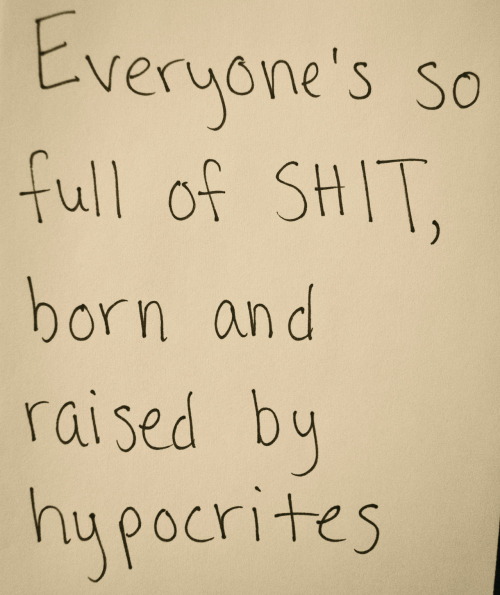 Everyone's so
full of SHIT,
born and
raised by
hypocrites